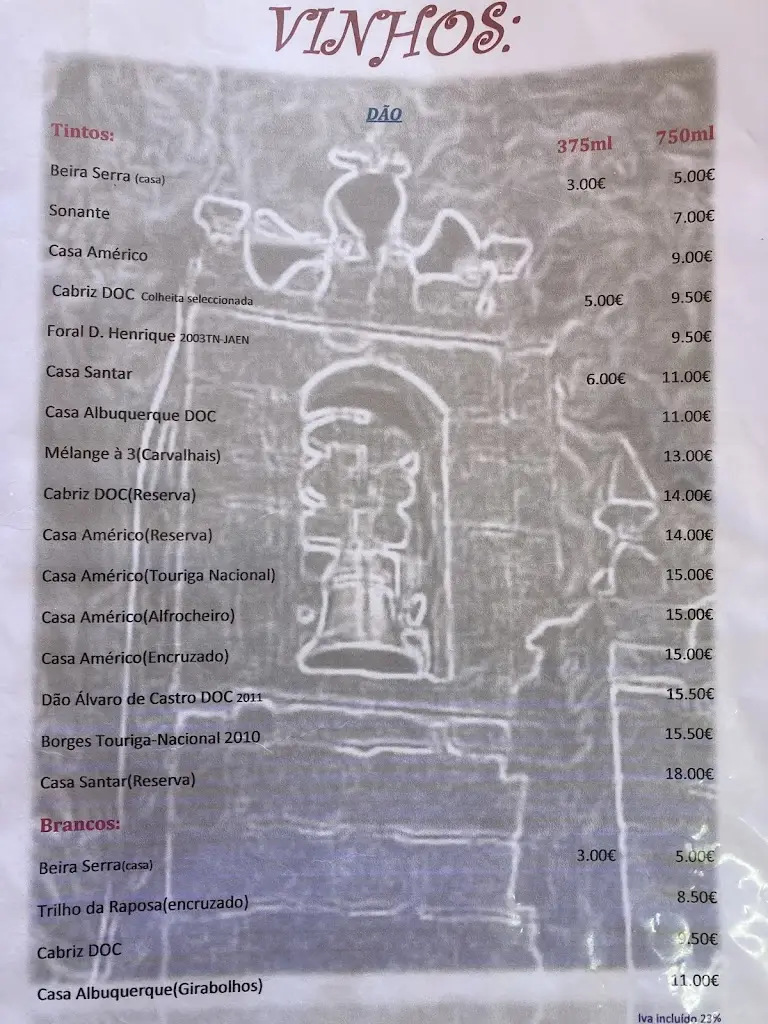 VINHOS:
DÃO
Tintos: 375ml 750ml
Beira Serra (casa) 3.00€ 5.00€
Sonante 7.00€
Casa Américo 9.00€
Cabriz DOC Colheita seleccionada 5.00€ 9.50€
Foral D. Henrique 2003TN-JAEN 9.50€
Casa Santar 6.00€ 11.00€
Casa Albuquerque DOC 11.00€
Mélange à 3(Carvalhais) 13.00€
Cabriz DOC(Reserva) 14.00€
Casa Américo(Reserva) 14.00€
Casa Américo(Touriga Nacional) 15.00€
Casa Américo(Alfrocheiro) 15.00€
Casa Américo(Encruzado) 15.00€
Dão Álvaro de Castro DOC 2011 15.50€
Borges Touriga-Nacional 2010 15.50€
Casa Santar(Reserva) 18.00€
Brancos:
Beira Serra(casa) 3.00€ 5.00€
Trilho da Raposa(encruzado) 8.50€
Cabriz DOC 9.50€
Casa Albuquerque(Girabolhos) 11.00€
Iva incluído 23%